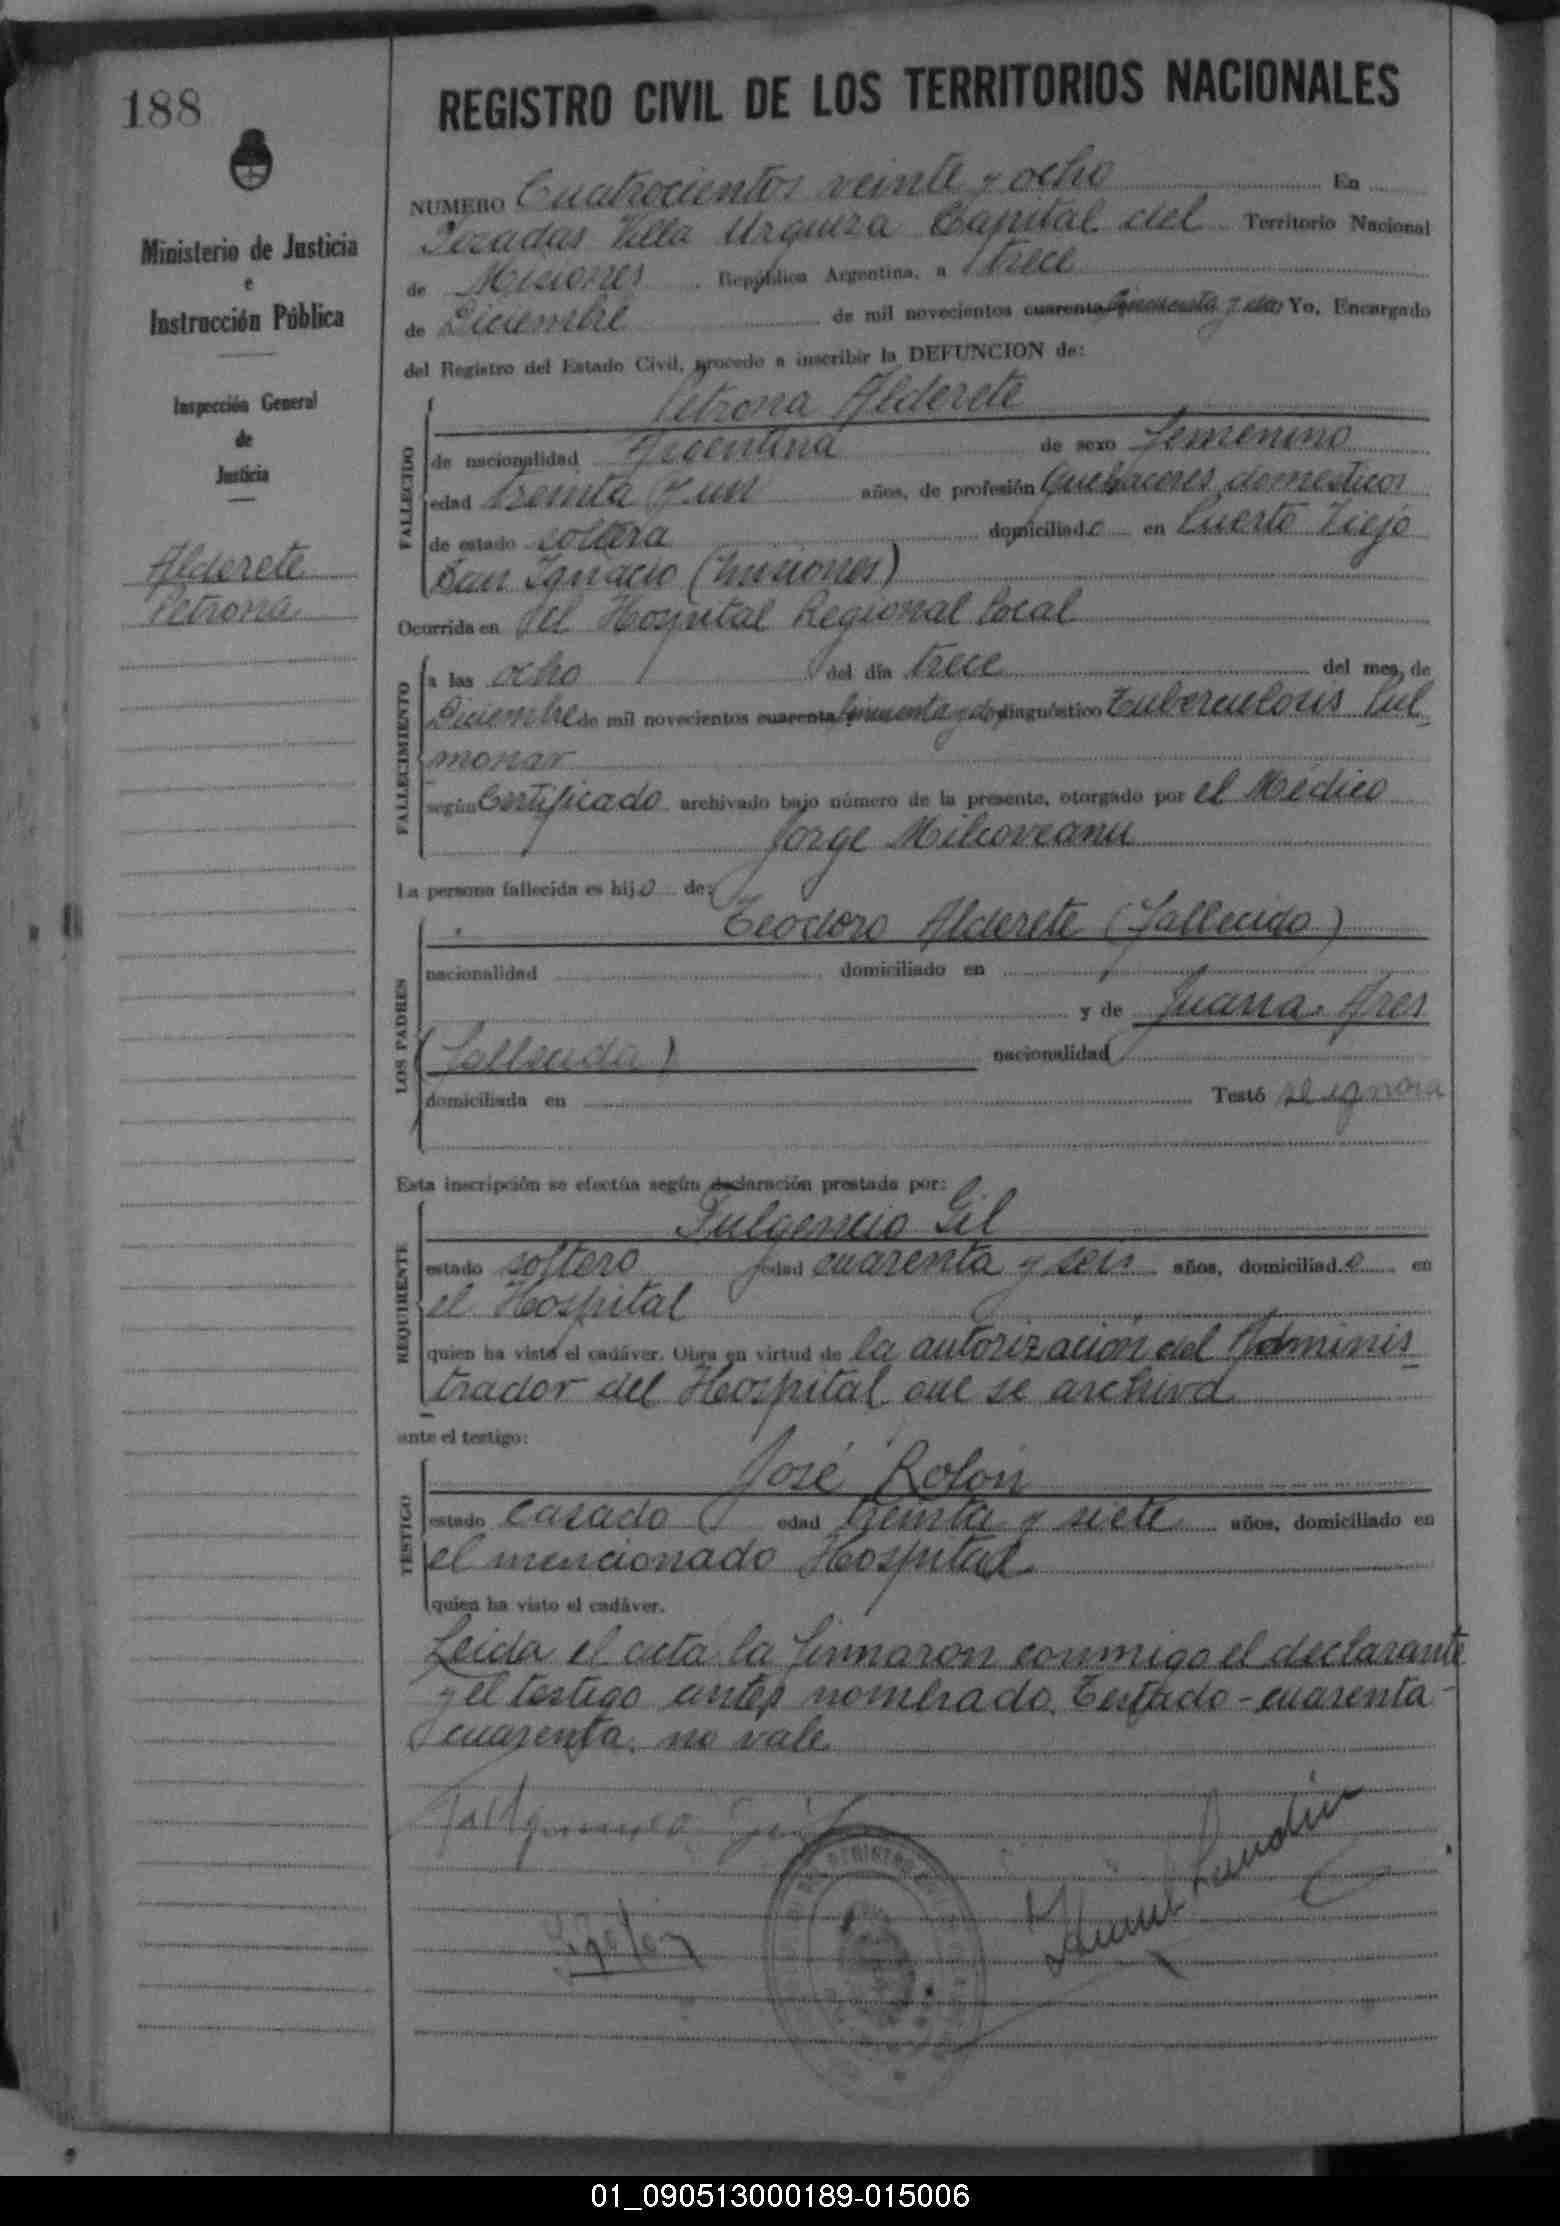 188
Ministerio de Justicia
e
Instrucción Pública
Inspección General
de
Justicia
Alderete
Petrona
REGISTRO CIVIL DE LOS TERRITORIOS NACIONALES
NUMERO Cuatrocientos veinte y ocho En
Posadas Villa Urquiza Capital del Territorio Nacional
de Misiones República Argentina, a trece
de Diciembre de mil novecientos cuarenta cincuenta y dos Yo, Encargado
del Registro del Estado Civil, procedo a inscribir la DEFUNCION de:
Petrona Alderete
FALLECIDO
de nacionalidad Argentina de sexo femenino
edad treinta y un años, de profesión quehaceres domesticos
de estado soltera domiciliado en Puerto Viejo
San Ignacio (Misiones)
Ocurrida en el Hospital Regional local
FALLECIMIENTO
a las ocho del día trece del mes de
Diciembre de mil novecientos cuarenta cincuenta y dos diagnóstico Tuberculosis Pul-
monar
según Certificado archivado bajo número de la presente, otorgado por el Médico
Jorge Milcoveanu
La persona fallecida es hijo de:
LOS PADRES
Teodoro Alderete (fallecido)
nacionalidad domiciliado en
y de Juana Ares
(fallecida) nacionalidad
domiciliada en Testó se ignora
Esta inscripción se efectúa según declaración prestada por:
REQUIRENTE
Fulgencio Gil
estado soltero edad cuarenta y seis años, domiciliado en
el Hospital
quien ha visto el cadáver. Obra en virtud de la autorización del Adminis-
trador del Hospital que se archiva
ante el testigo:
TESTIGO
José Rolón
estado casado edad treinta y siete años, domiciliado en
el mencionado Hospital
quien ha visto el cadáver.
Leida el acta la firmaron conmigo el declarante
y el testigo antes nombrado. Testado - cuarenta -
cuarenta. no vale
01_090513000189-015006